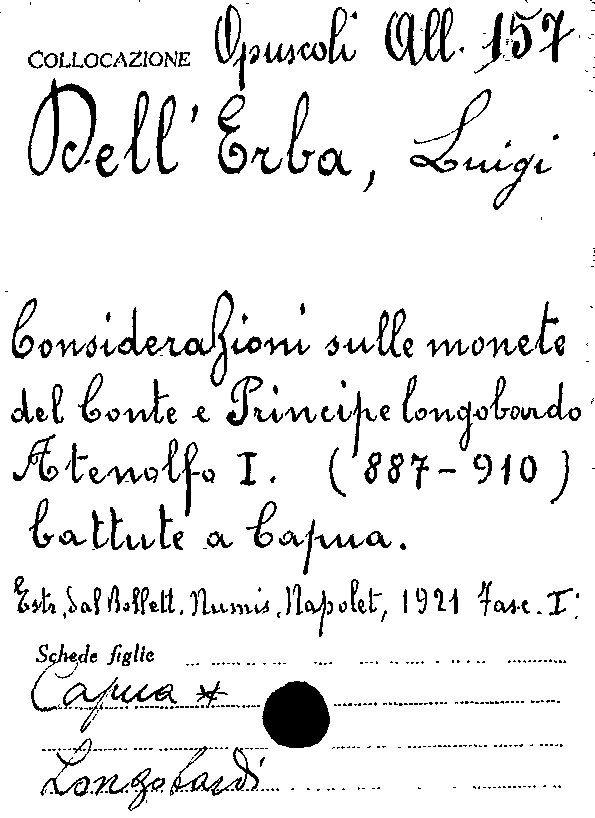 COLLOCAZIONE Opuscoli All. 157
Dell'Erba, Luigi
Considerazioni sulle monete
del Conte e Principe longobardo
Atenolfo I. (887-910)
battute a Capua.
Estr. dal Bollett. Numis. Napolet, 1921 Fasc. I:
Schede figlie
Capua *
Longobardi